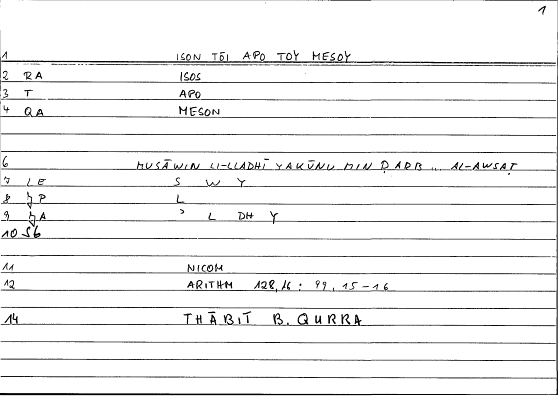 1
1 ISON TŌI APO TOY MESOY
2 RA ISOS
3 T APO
4 QA MESON
6 MUSĀWIN LI-LLADHĪ YAKŪNU MIN ḌARB ... AL-AWSAṬ
7 LE S W Y
8 P L
9 A ʾ L DH Y
10 S6
11 NICOM
12 ARITHM 128,16 : 99, 15-16
14 THĀBIT B. QURRA